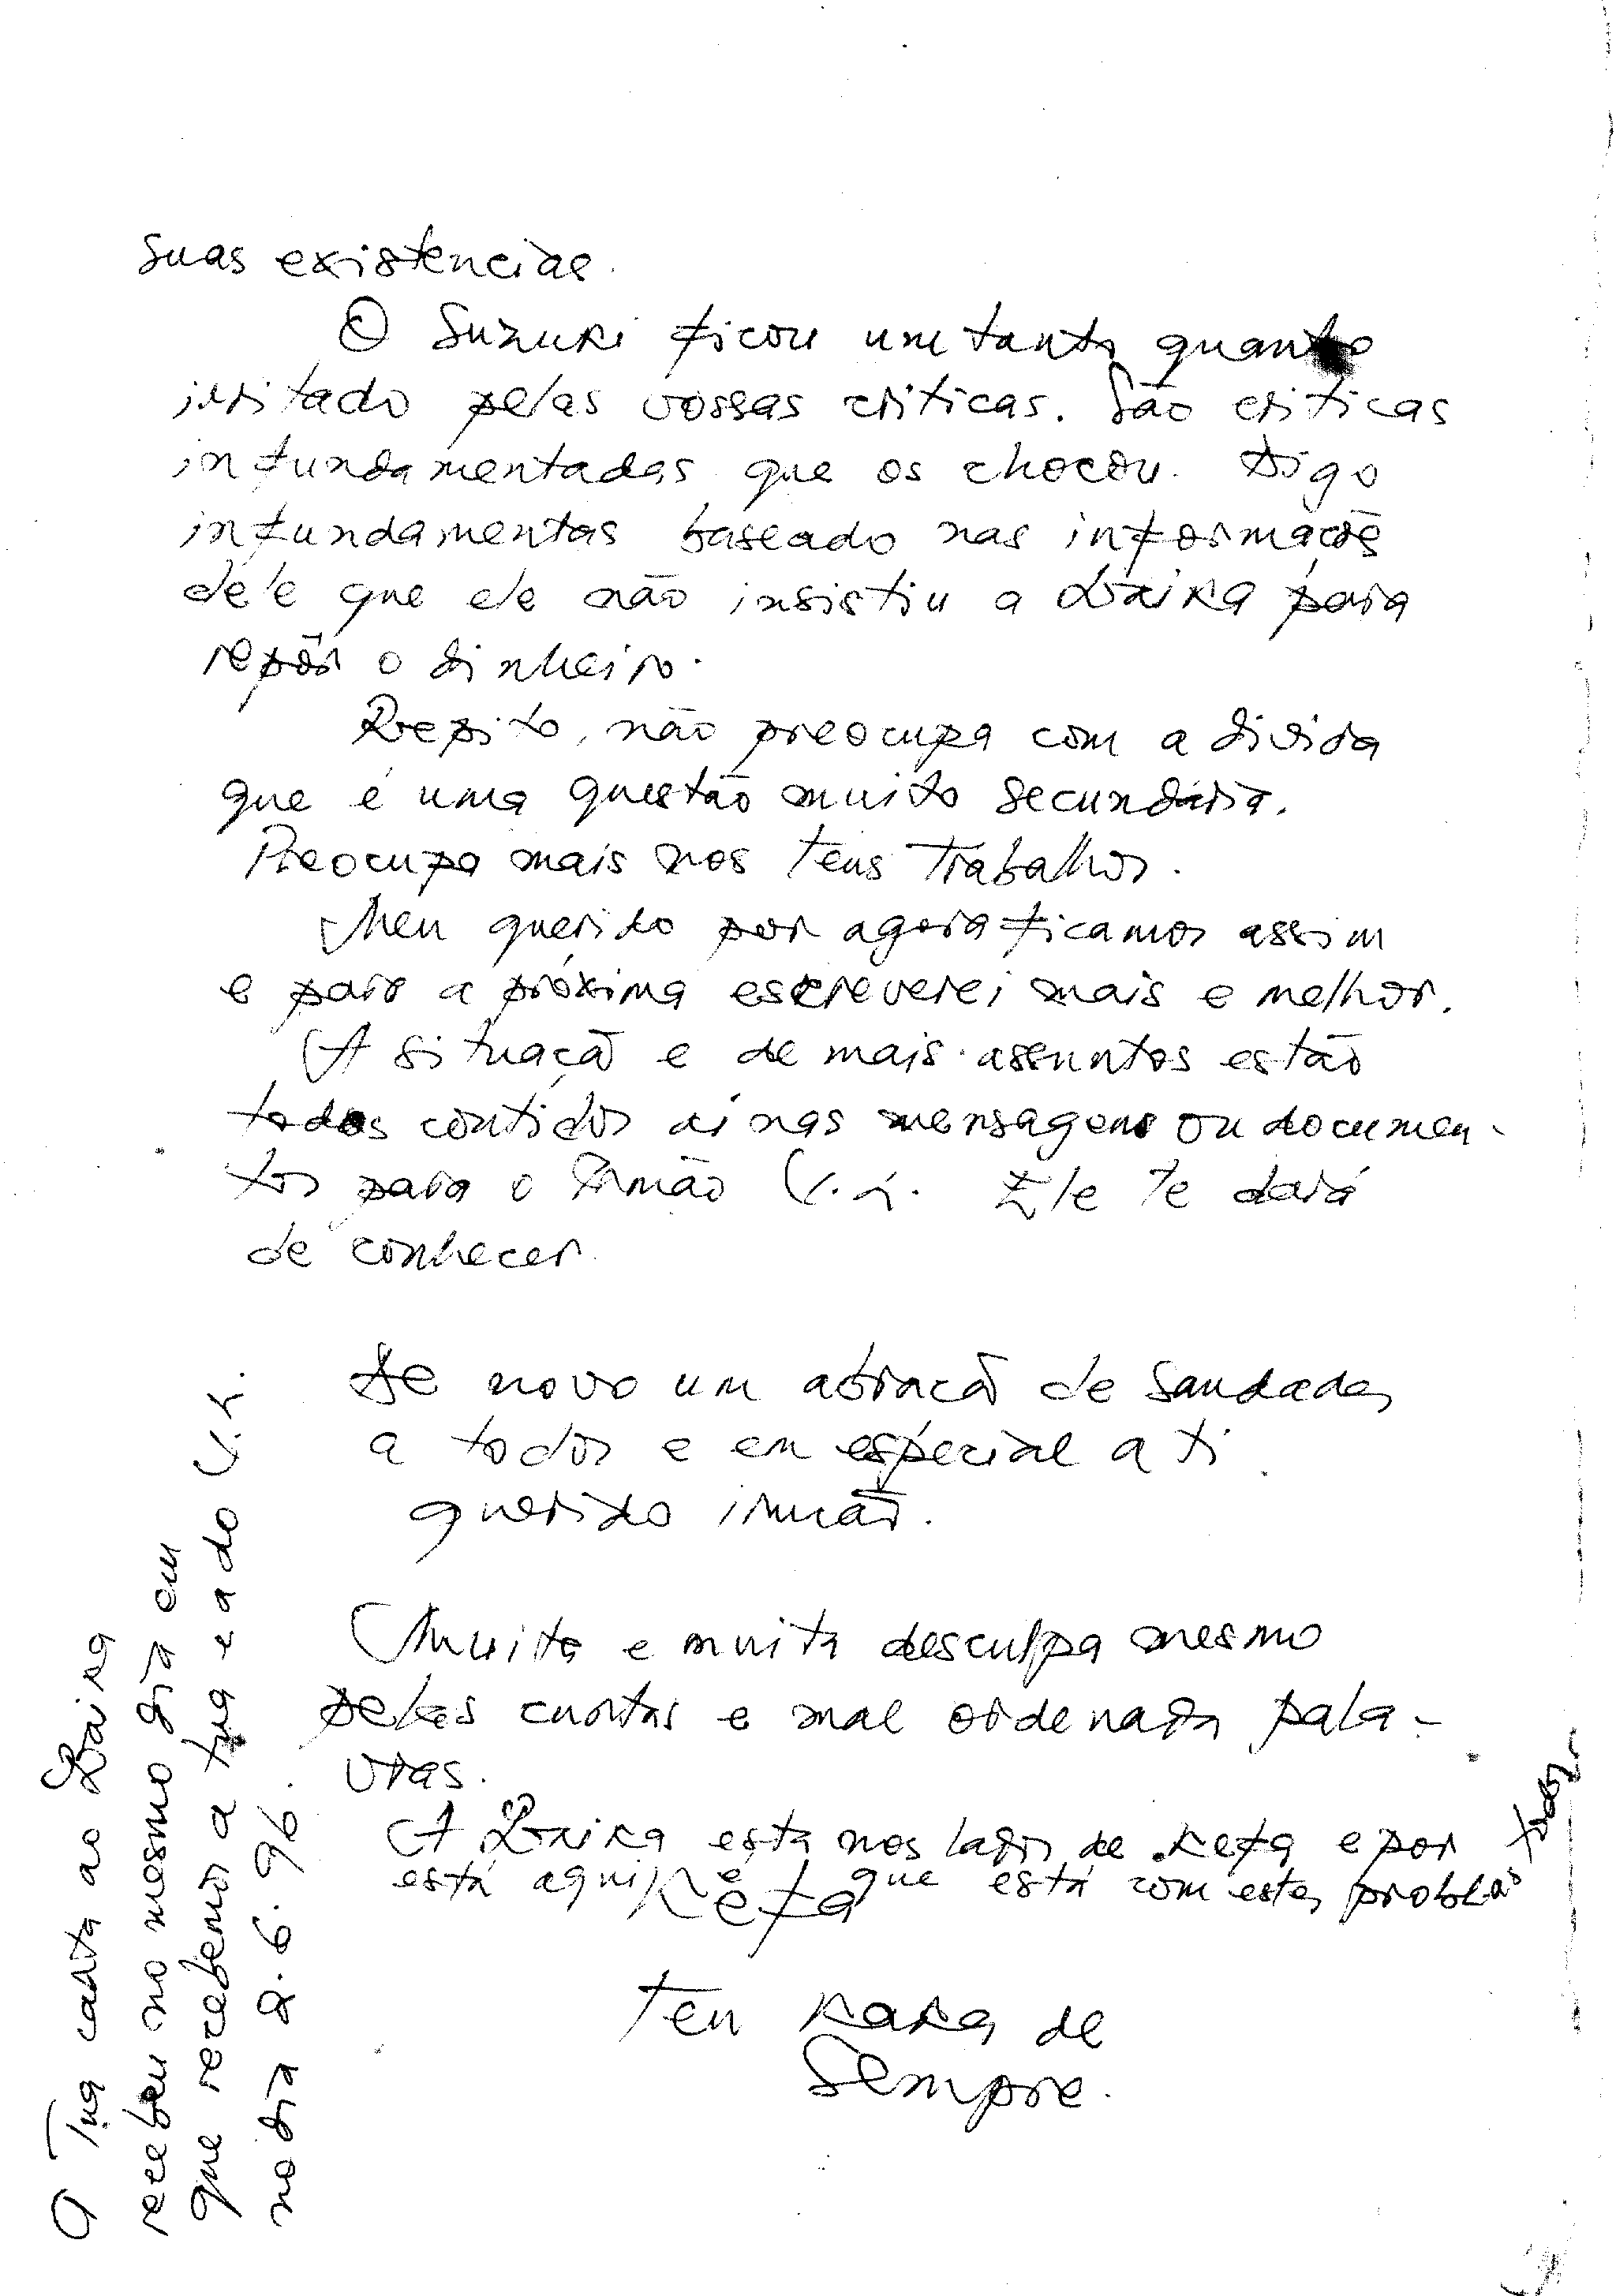 suas existencias.
O Suzuki ficou um tanto quanto
irritado pelas vossas criticas. São criticas
infundamentadas que os chocou. Digo
infundamentas baseado nas informações
dele que ele não insistiu a Laika para
repôr o dinheiro.
Repito, não preocupa com a divida
que é uma questão muito secundária.
Preocupa mais nos teus trabalhos.
Meu querido por agora ficamos assim
e para a próxima escreverei mais e melhor.
A situação e de mais assuntos estão
todos contidos aí nas mensagens ou documen-
tos para o Irmão
Ele te dará
de conhecer.
De novo um abração de saudades
a todos e em especial a ti
querido irmão.
Muita e muita desculpa mesmo
pelas curtas e mal ordenada pala-
vras.
A Laika está nos lados de Kefa e por
está aqui Kefa que está com estes problas
Teu Kaka de
Sempre.
A Tua carta ao Laika
recebeu no mesmo dia em
que recebemos a tua e a do
no dia 2.6.96.